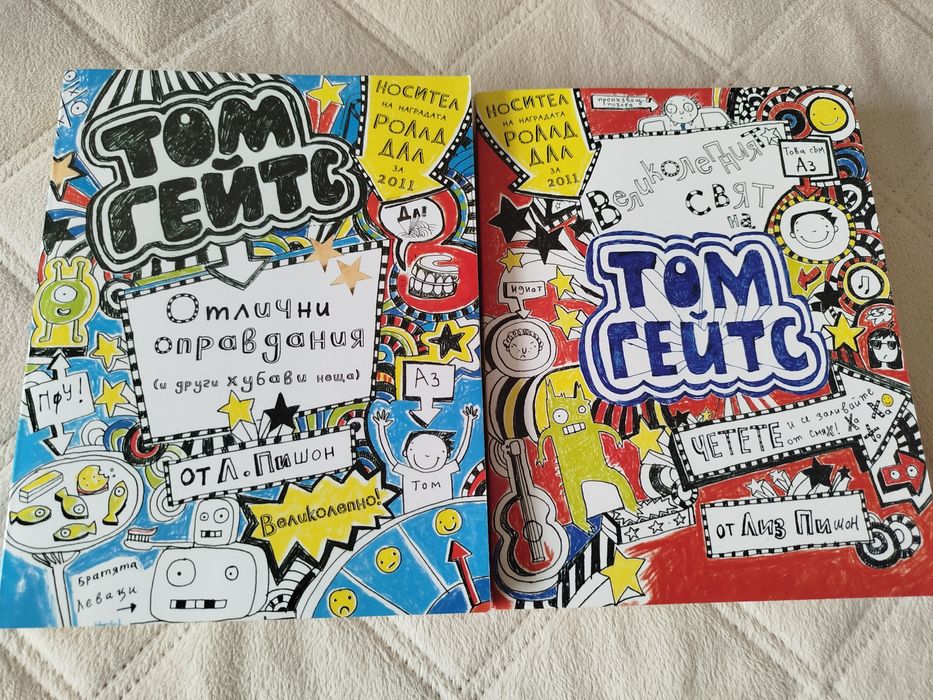 ТОМ
ГЕЙТС
НОСИТЕЛ
НА НАГРАДАТА
РОАЛД
ДАЛ
ЗА
2011
ДА!
Отлични
оправдания
(и други хубави неща)
ПФУ!
АЗ
от Л. Пишон
Том
Великолепно!
Братята
Леваци
НОСИТЕЛ
НА НАГРАДАТА
РОАЛД
ДАЛ
ЗА
2011
пронизващ
поглед
Великолепният
свят
на
Това съм
АЗ
ТОМ
ГЕЙТС
идиот
ЧЕТЕТЕ и се заливайте
от смях!
Ха
Ха
Ха
от Лиз Пишон